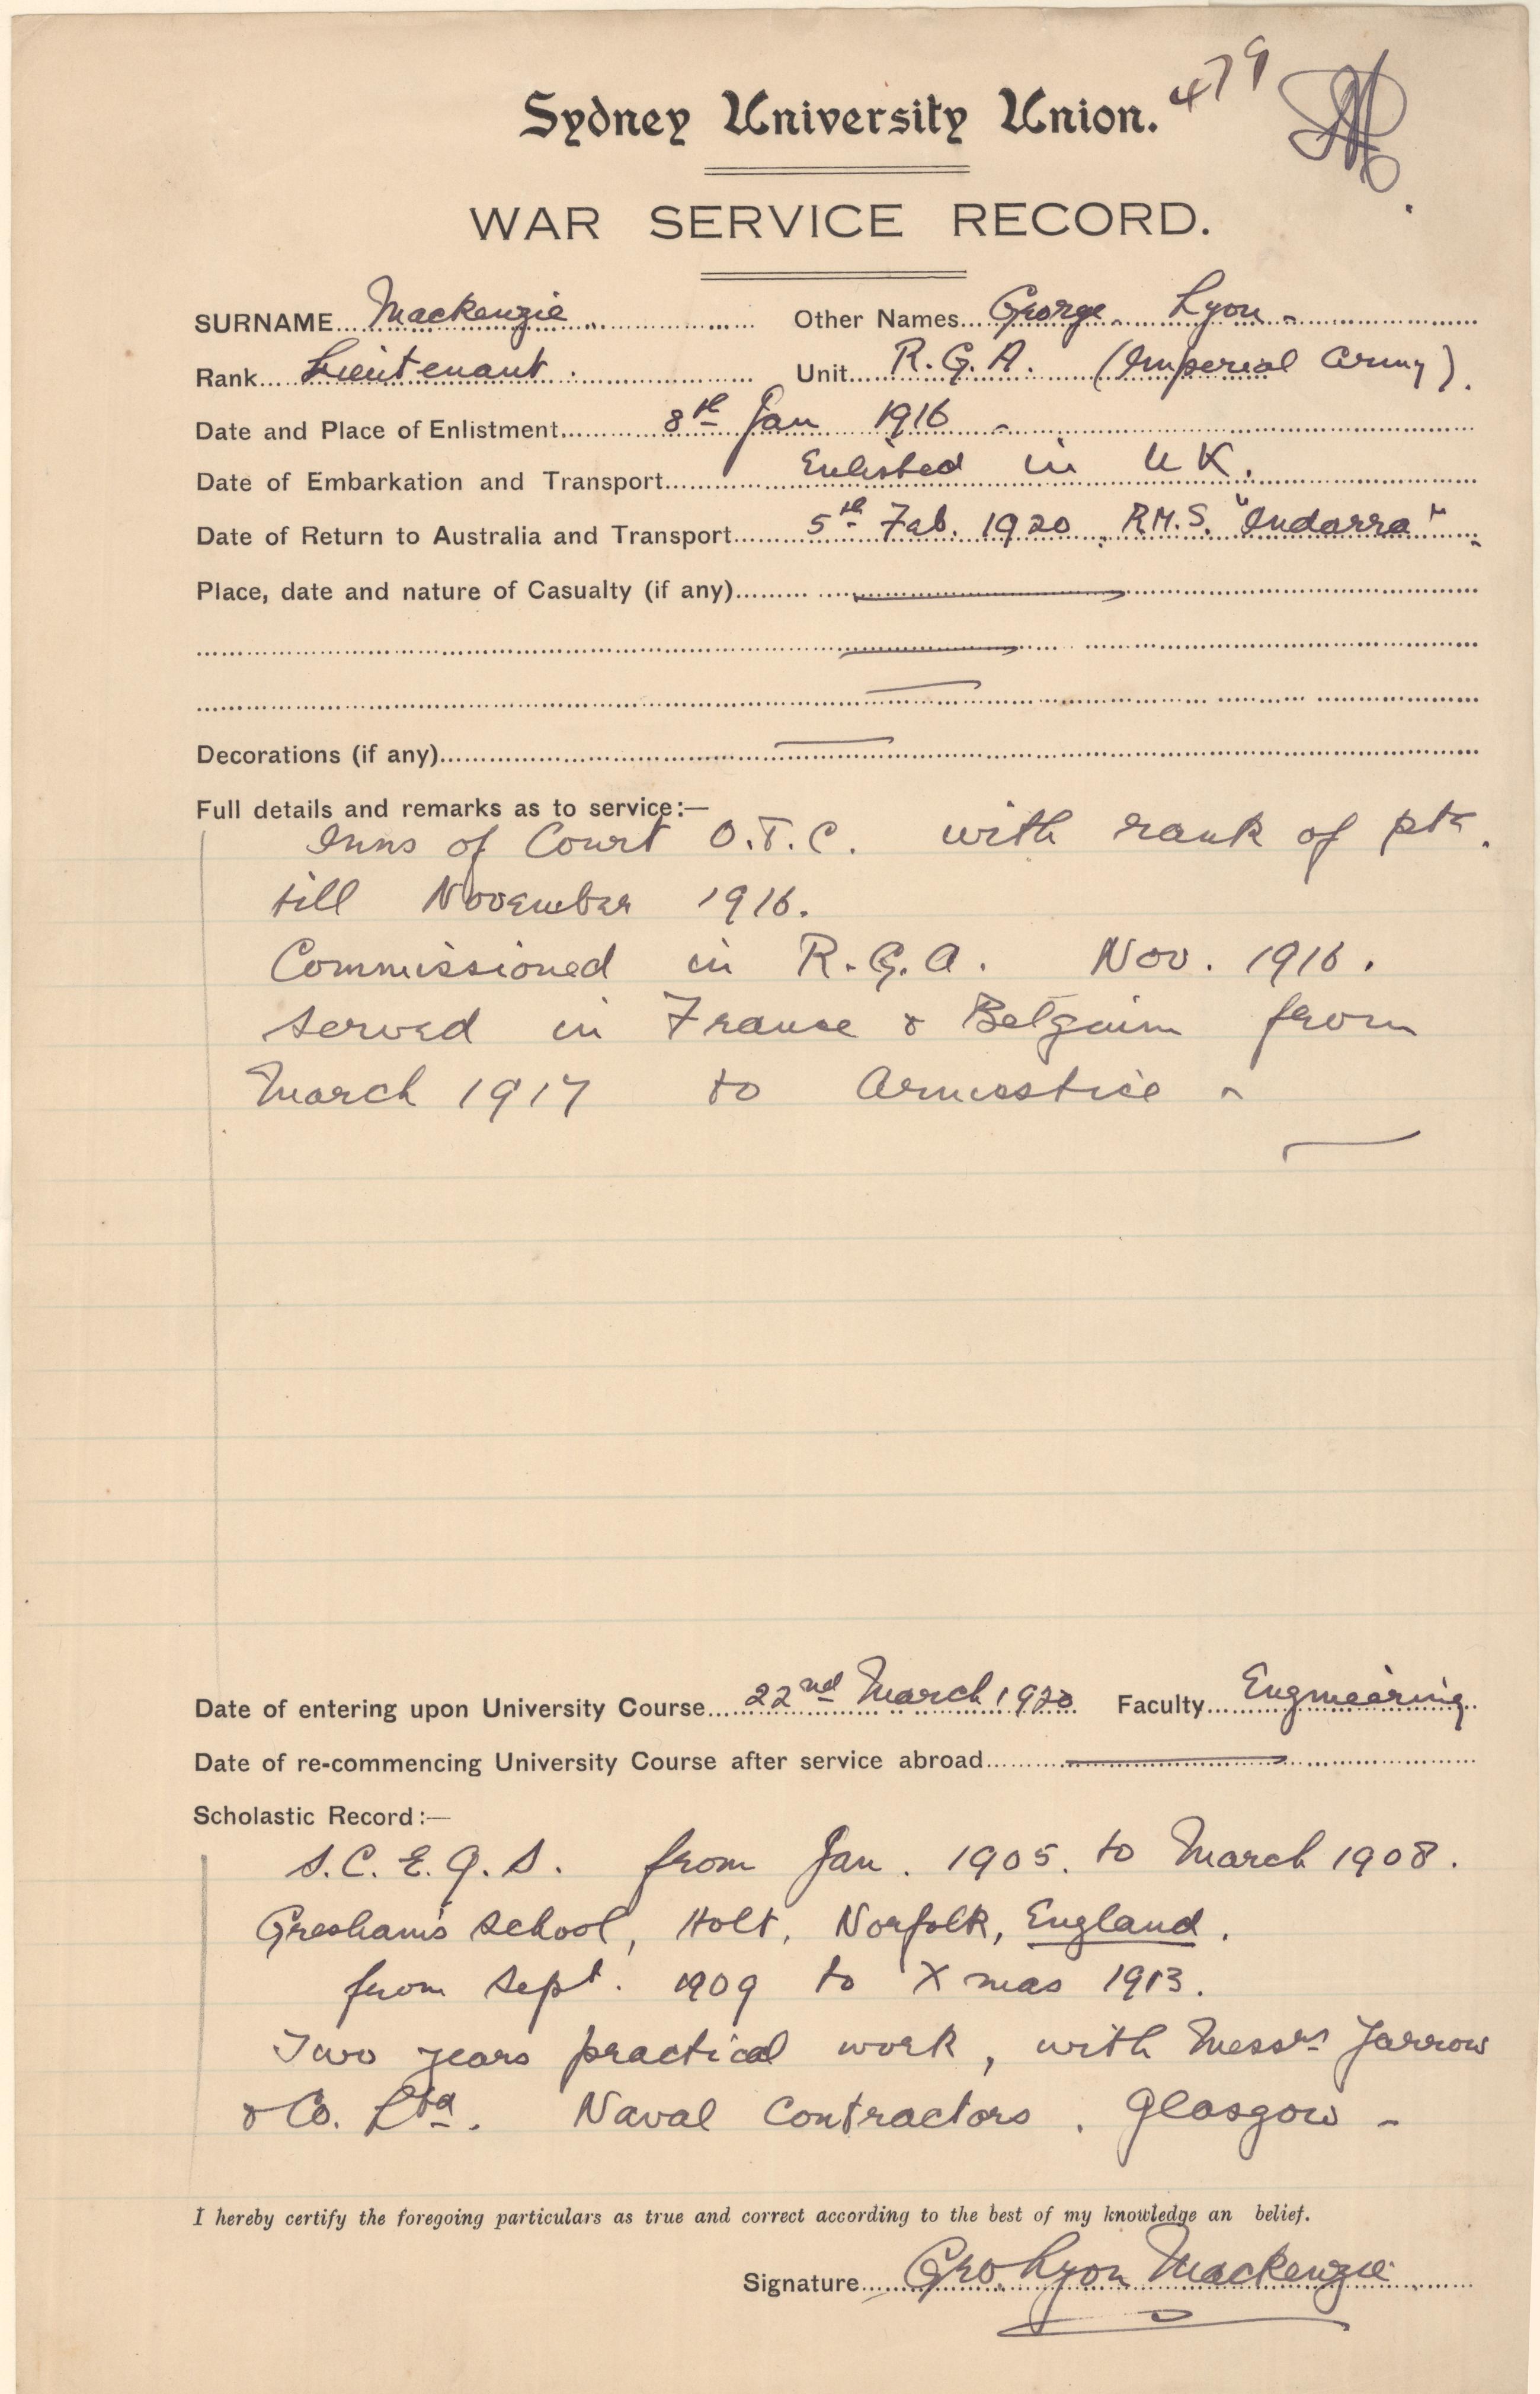 479
Sydney University Union.
WAR SERVICE RECORD.
SURNAME Mackenzie Other Names George Lyon
Rank Lieutenant Unit R.G.A. (Imperial Army).
Date and Place of Enlistment 8th Jan 1916
Date of Embarkation and Transport Enlisted in UK.
Date of Return to Australia and Transport 5th Feb. 1920. R.M.S. "Indarra"
Place, date and nature of Casualty (if any)
Decorations (if any)
Full details and remarks as to service:—
Inns of Court O.T.C. with rank of pte.
till November 1916.
Commissioned in R.G.A. Nov. 1916.
served in France & Belgium from
March 1917 to Armistice
Date of entering upon University Course 22nd March 1920 Faculty Engineering
Date of re-commencing University Course after service abroad
Scholastic Record:—
S.C.E.G.S. from Jan. 1905. to March 1908.
Gresham's School, Holt, Norfolk, England.
from Sept. 1909 to Xmas 1913.
Two years practical work, with Messrs Yarrow
& Co. Ltd. Naval Contractors. Glasgow -
I hereby certify the foregoing particulars as true and correct according to the best of my knowledge an belief.
Signature Geo Lyon Mackenzie